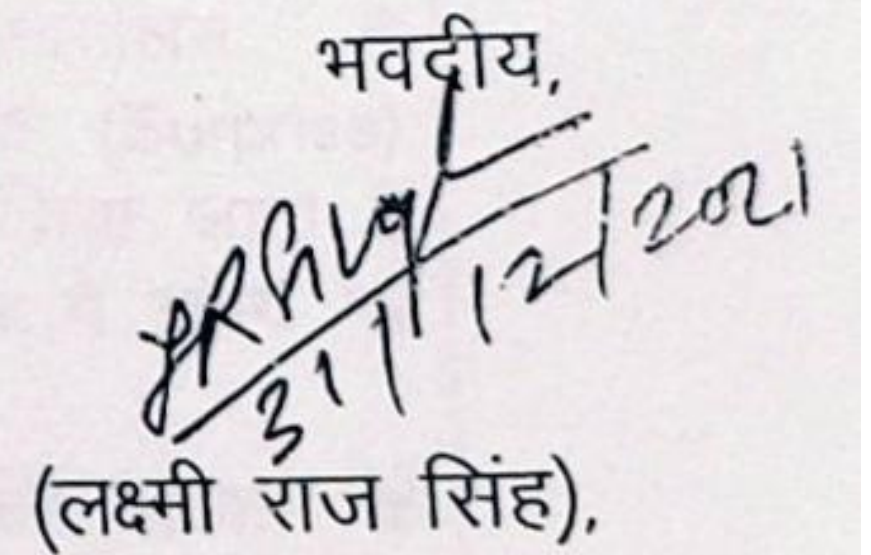 भवदीय,
31/12/2021
(लक्ष्मी राज सिंह),